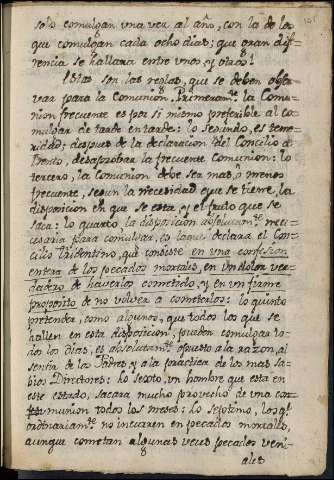 solo comulgan una vez al año, con la de los
que comulgan cada ocho dias; que gran dife-
rencia se hallara entre unos, y otros!
Estas son las reglas, que se deben obser-
var para la Comunion. Primeramte. la Comu-
nion frecuente es por si mismo preferible al co-
mulgar de tarde en tarde: lo segundo, es teme-
ridad; despues de la declaracion del Concilio de
Trento, desaprobar la frecuente Comunion: lo
tercero, la Comunion debe ser mas, o menos
frecuente, segun la necesidad que se tiene, la
disposicion en que se està, y el fruto que se
saca: lo quarto, la disposicion absolutamte. nece-
cesaria para comulgar, es la que declara el Con-
cilio Tridentino, que consiste en una confesion
entera de los pecados mortales, en un dolor ver-
dadero de haverlos cometido, y en un firme
proposito de no volver a cometerlos: lo quinto
pretender, como algunos, que todos los que se
hallen en esta disposicion, pueden comulgar to-
dos los dias, es absolutamte. opuesto a la razon, al
sentir de los Padres, y a la practica de los mas Sa-
bios Directores: Lo sesto, un hombre que està en
este estado, sacarà mucho provecho de una co-
munion todos los meses: Lo septimo, los qe.
ordinariamte. no incurren en pecados mortales,
aunque cometan algunas veces pecados veni-
ales